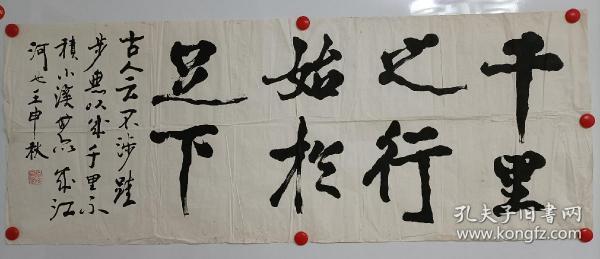 千里
之行
始於
足下
古人云不涉跬
步無以成千里不
積小溪無以成江
河也壬申秋
孔夫子旧书网
www.kongfz.com